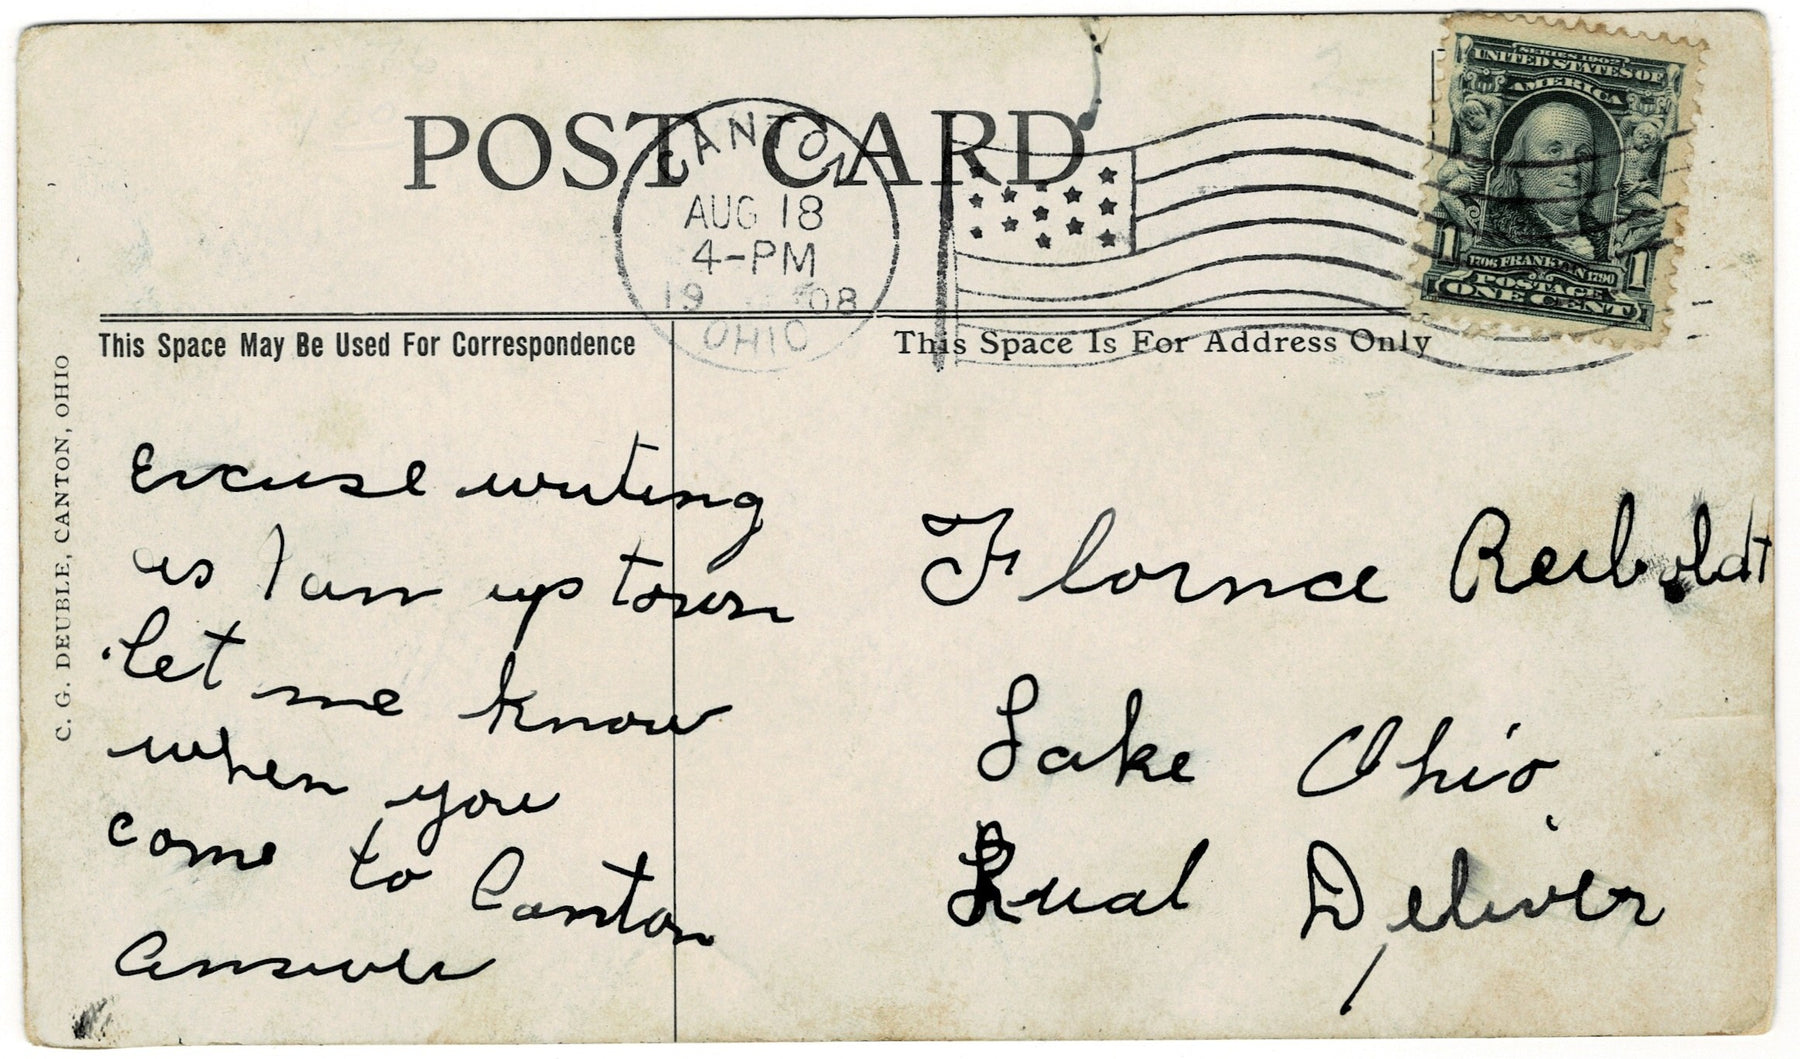 POST CARD
CANTON
AUG 18
4-PM
19 08
OHIO
SERIES 1902
UNITED STATES OF
AMERICA
1706 FRANKLIN 1790
1 1
POSTAGE
ONE CENT
This Space May Be Used For Correspondence
This Space Is For Address Only
C. G. DEUBLE, CANTON, OHIO
Excuse writing
as I am up town
let me know
when you
come to Canton
Answer
Flornce Reiboldt
Lake Ohio
Rual Deliver